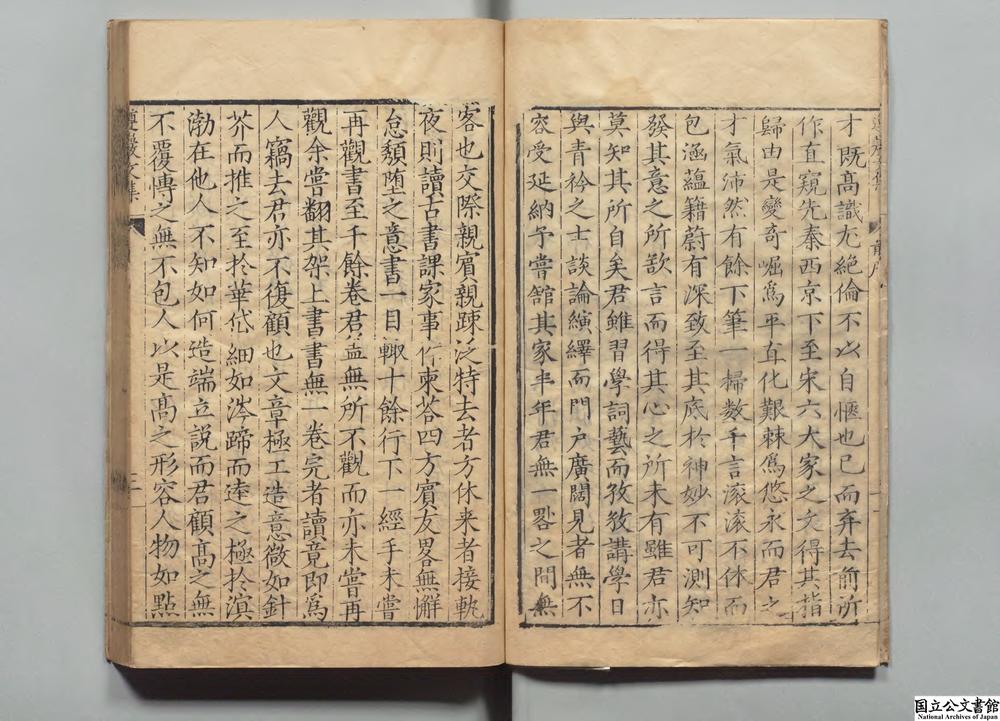 才既高識尤絶倫不以自愜也已而弃去前所
作直窺先秦西京下至宋六大家之文得其指
歸由是變奇崛爲平直化艱棘爲悠永而君之
才氣沛然有餘下筆一掃數千言滚滚不休而
包涵蘊籍蔚有深致至其底於神妙不可測知
發其意之所欲言而得其心之所未有雖君亦
莫知其所自矣君雖習學詞藝而孜孜講學日
與青衿之士談論演繹而門户廣闊見者無不
容受延納予嘗舘其家半年君無一畧之間無
客也交際親賓親踈泛特去者方休来者接軌
夜則讀古書課家事作柬荅四方賓友畧無懈
怠頽堕之意書一目輙十餘行下一經手未嘗
再觀書至千餘卷君盖無所不觀而亦未嘗再
觀余嘗翻其架上書書無一卷完者讀竟即爲
人竊去君亦不復顧也文章極工造意微如針
芥而推之至於華岱細如涔蹄而逹之極於溟
渤在他人不知如何造端立説而君顧高之無
不覆愽之無不包人以是高之形容人物如點
遵巖文集
三
国立公文書館
National Archives of Japan